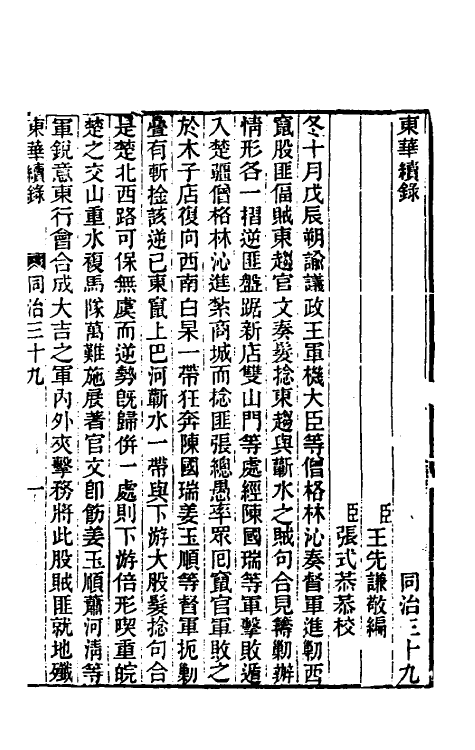 東華續錄　同治三十九
臣王先謙敬編
臣張式恭恭校
冬十月戊辰朔諭議政王軍機大臣等僧格林沁奏督軍進勦西
竄股匪偪賊東趨官文奏髮捻東趨與蘄水之賊句合見籌勦辦
情形各一摺逆匪盤踞新店雙山門等處經陳國瑞等軍擊敗遁
入楚疆僧格林沁進紮商城而捻匪張總愚率眾囘竄官軍敗之
於木子店復向西南白杲一帶狂奔陳國瑞姜玉順等督軍扼勦
疊有斬捦該逆已東竄上巴河蘄水一帶與下游大股髮捻句合
是楚北西路可保無虞而逆勢旣歸併一處則下游倍形喫重皖
楚之交山重水複馬隊萬難施展著官文卽飭姜玉順蕭河淸等
軍銳意東行會合成大吉之軍內外夾擊務將此股賊匪就地殲
東華續錄　同治三十九　一